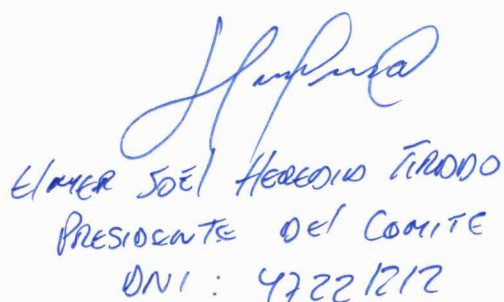 Elmer Joél Heredia Tirado
Presidente del Comité
DNI: 47221212